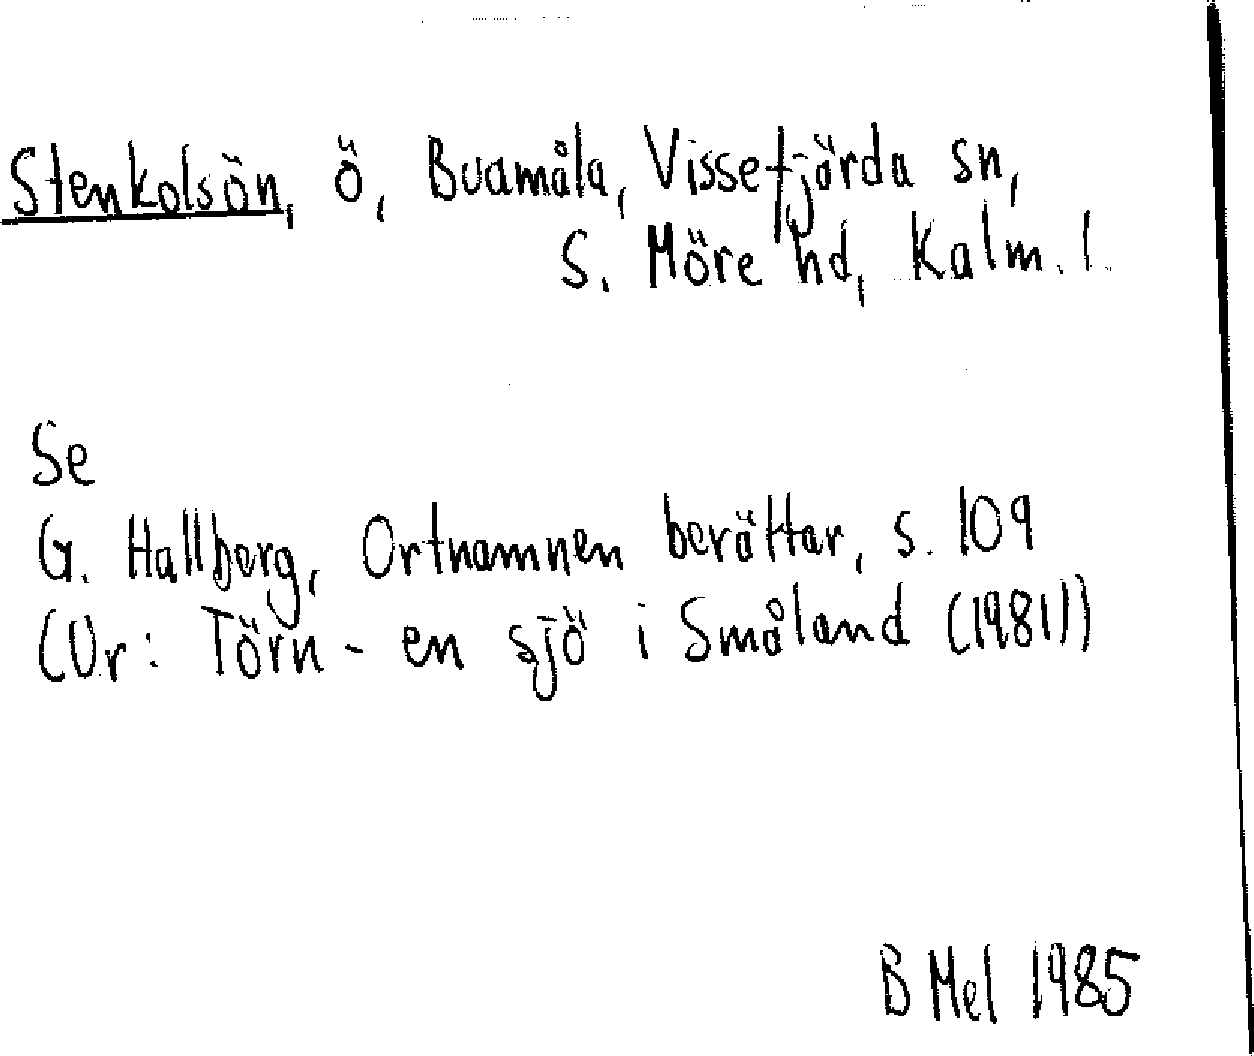 Stenkolsön, ö, Buamåla, Vissefjärda sn,
S. Möre hd, Kalm. l.
Se
G. Hallberg, Ortnamnen berättar, s. 109
(Ur: Törn - en sjö i Småland (1981))
B Mel 1985